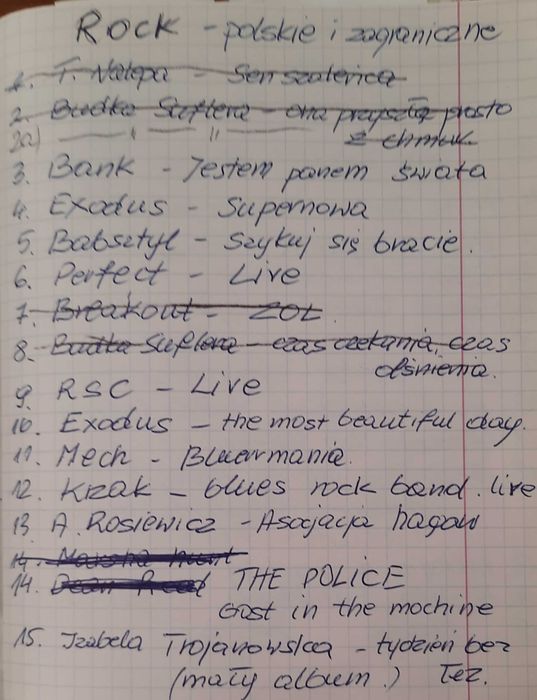 Rock - polskie i zagraniczne
1. T. Nalepa - Sen szaleńca
2. Budka Suflera - ona przyszła prosto
z chmur
2a) " "
3. Bank - Jestem panem świata
4. Exodus - Supernowa
5. Babsztyl - Szykuj się bracie.
6. Perfect - Live
7. Breakout - ZOŁ
8. Budka Suflera - czas czekania, czas
olśnienia.
9. RSC - Live
10. Exodus - the most beautiful day.
11. Mech - Bluffmania.
12. Krzak - blues rock band. live
13. A. Rosiewicz - Asocjacja hagaw
14. Marsha Hunt
14. Dean Reed THE POLICE
Gost in the mochine
15. Izabela Trojanowska - tydzień bez
(mały album.) Łez.